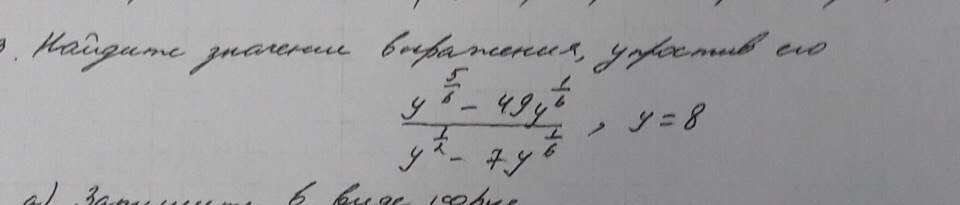 . Найдите значение выражения, упростив его
y^{5/6} - 49y^{1/6}
/ y^{1/2} - 7y^{1/6} , y = 8
а) Запишите в виде